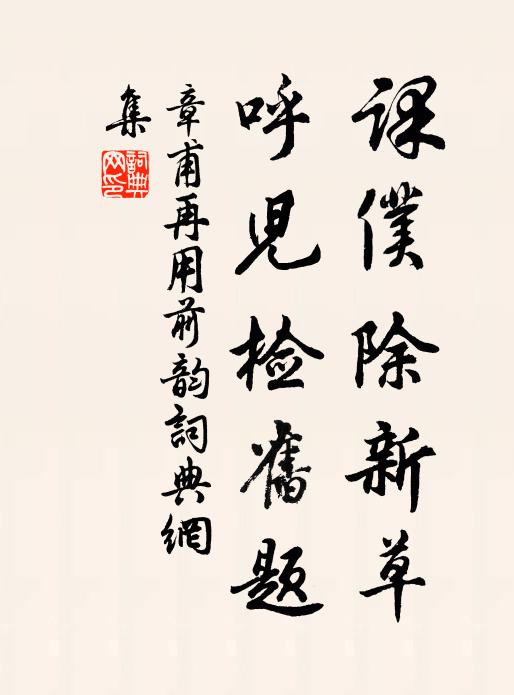 課僕除新草
呼児檢舊題
章甫再用前韵詞典網
集
詞典
网印